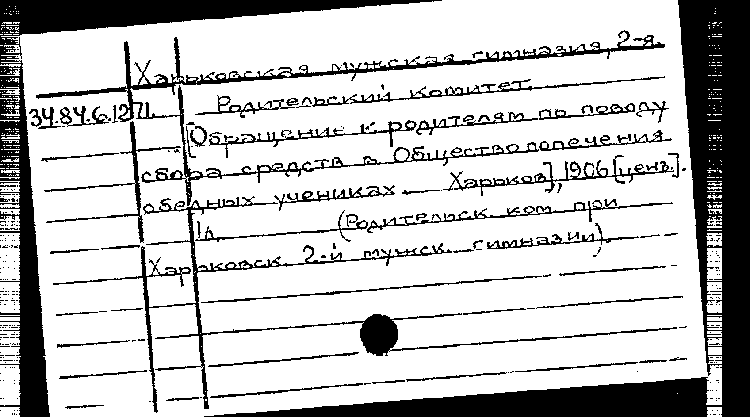 Харьковская мужская гимназия, 2-я.
34.84.6.1271. Родительский комитет.
[Обращение к родителям по поводу
сбора средств в Общество попечения
о бедных учениках. Харьков], 1906 [ценз].
1л. (Родительск. ком. при
Харьковск. 2-й мужск. гимназии).